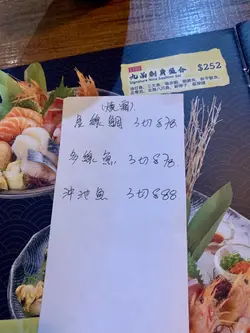 九品刺身盛合 $252
Signature Nine Sashimi Set
(廣島)
星線鯛 3切 $78
多線魚 3切 $78
沖池魚 3切 $88